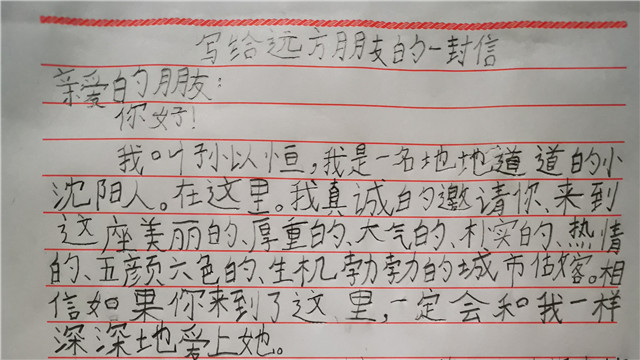 写给远方朋友的一封信
亲爱的朋友:
你好!
我叫孙以恒,我是一名地地道道的小
沈阳人。在这里。我真诚的邀请你、来到
这座美丽的、厚重的、大气的、朴实的、热情
的、五颜六色的、生机勃勃的城市做客。相
信如果你来到了这里,一定会和我一样
深深地爱上她。